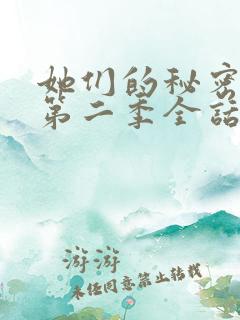 她们的秘密
第二季全话
游游
未经同意禁止转载